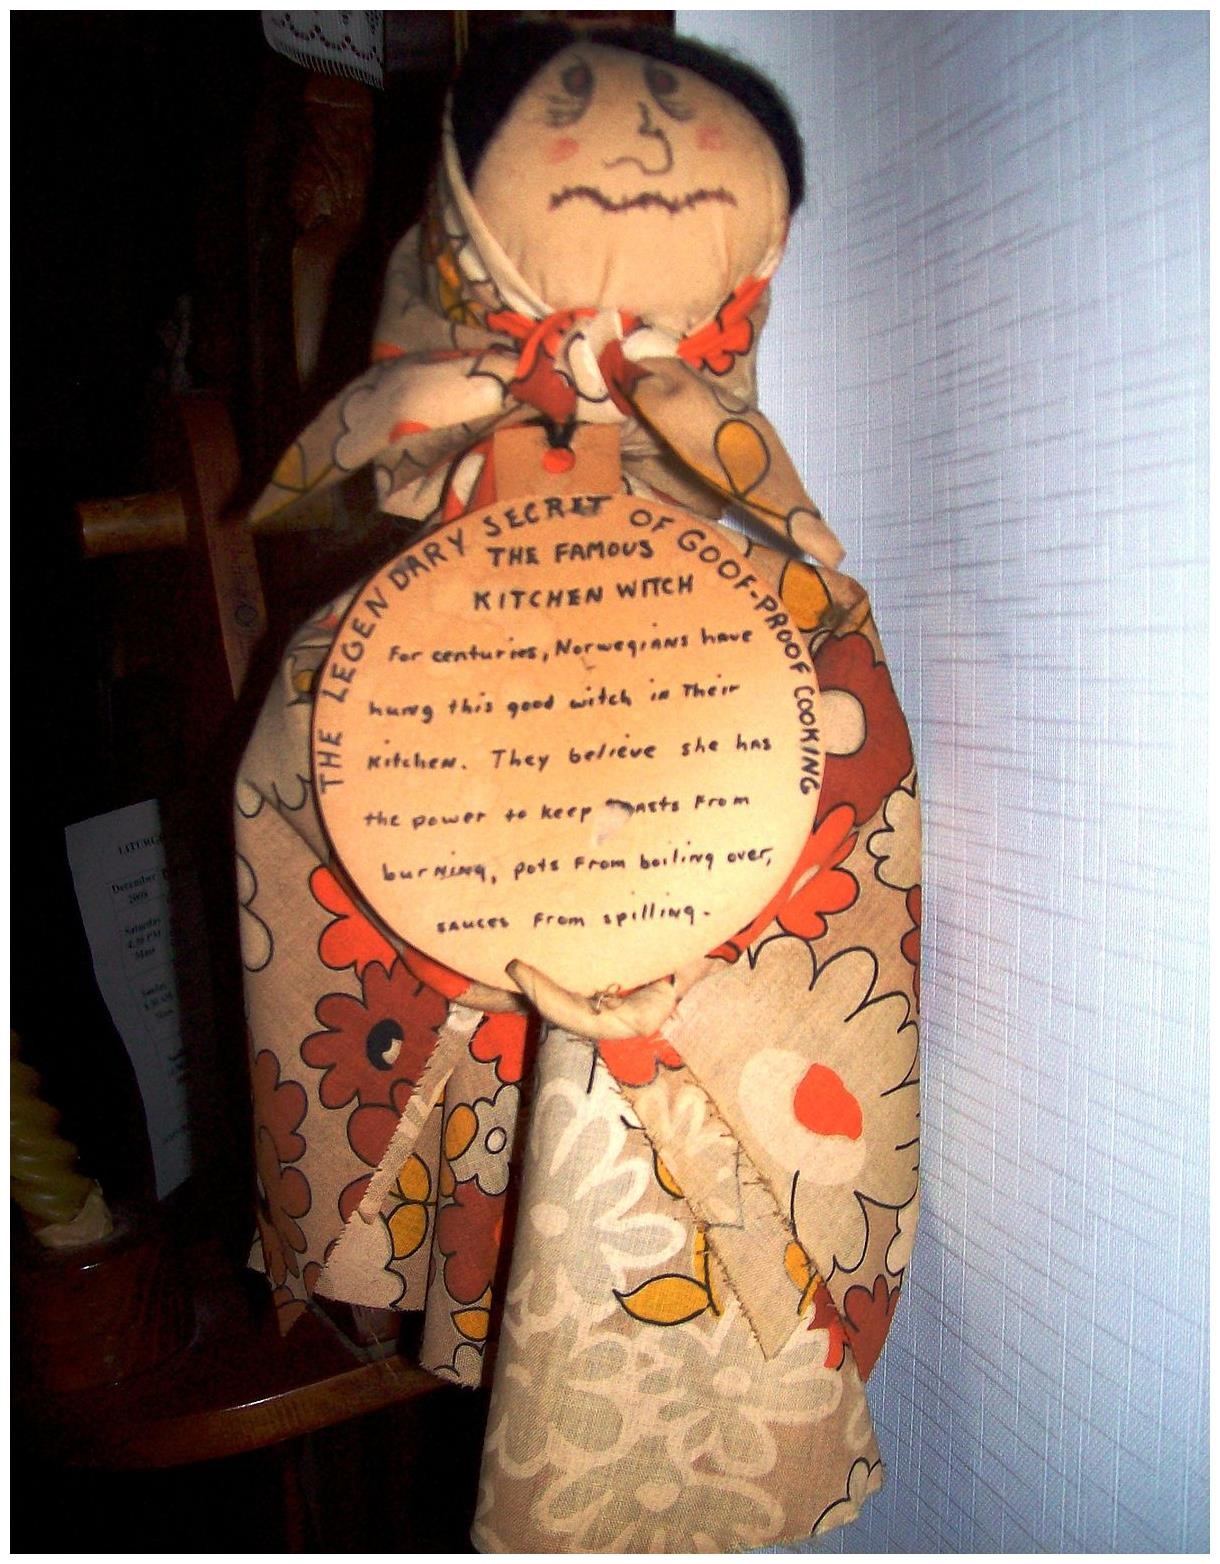 THE LEGENDARY SECRET OF GOOF-PROOF COOKING
THE FAMOUS
KITCHEN WITCH
For centuries, Norwegians have
hung this good witch in Their
Kitchen. They believe she has
the power to keep from
burning, pots from boiling over,
sauces from spilling.
December
Saturday
Mass
Sunday